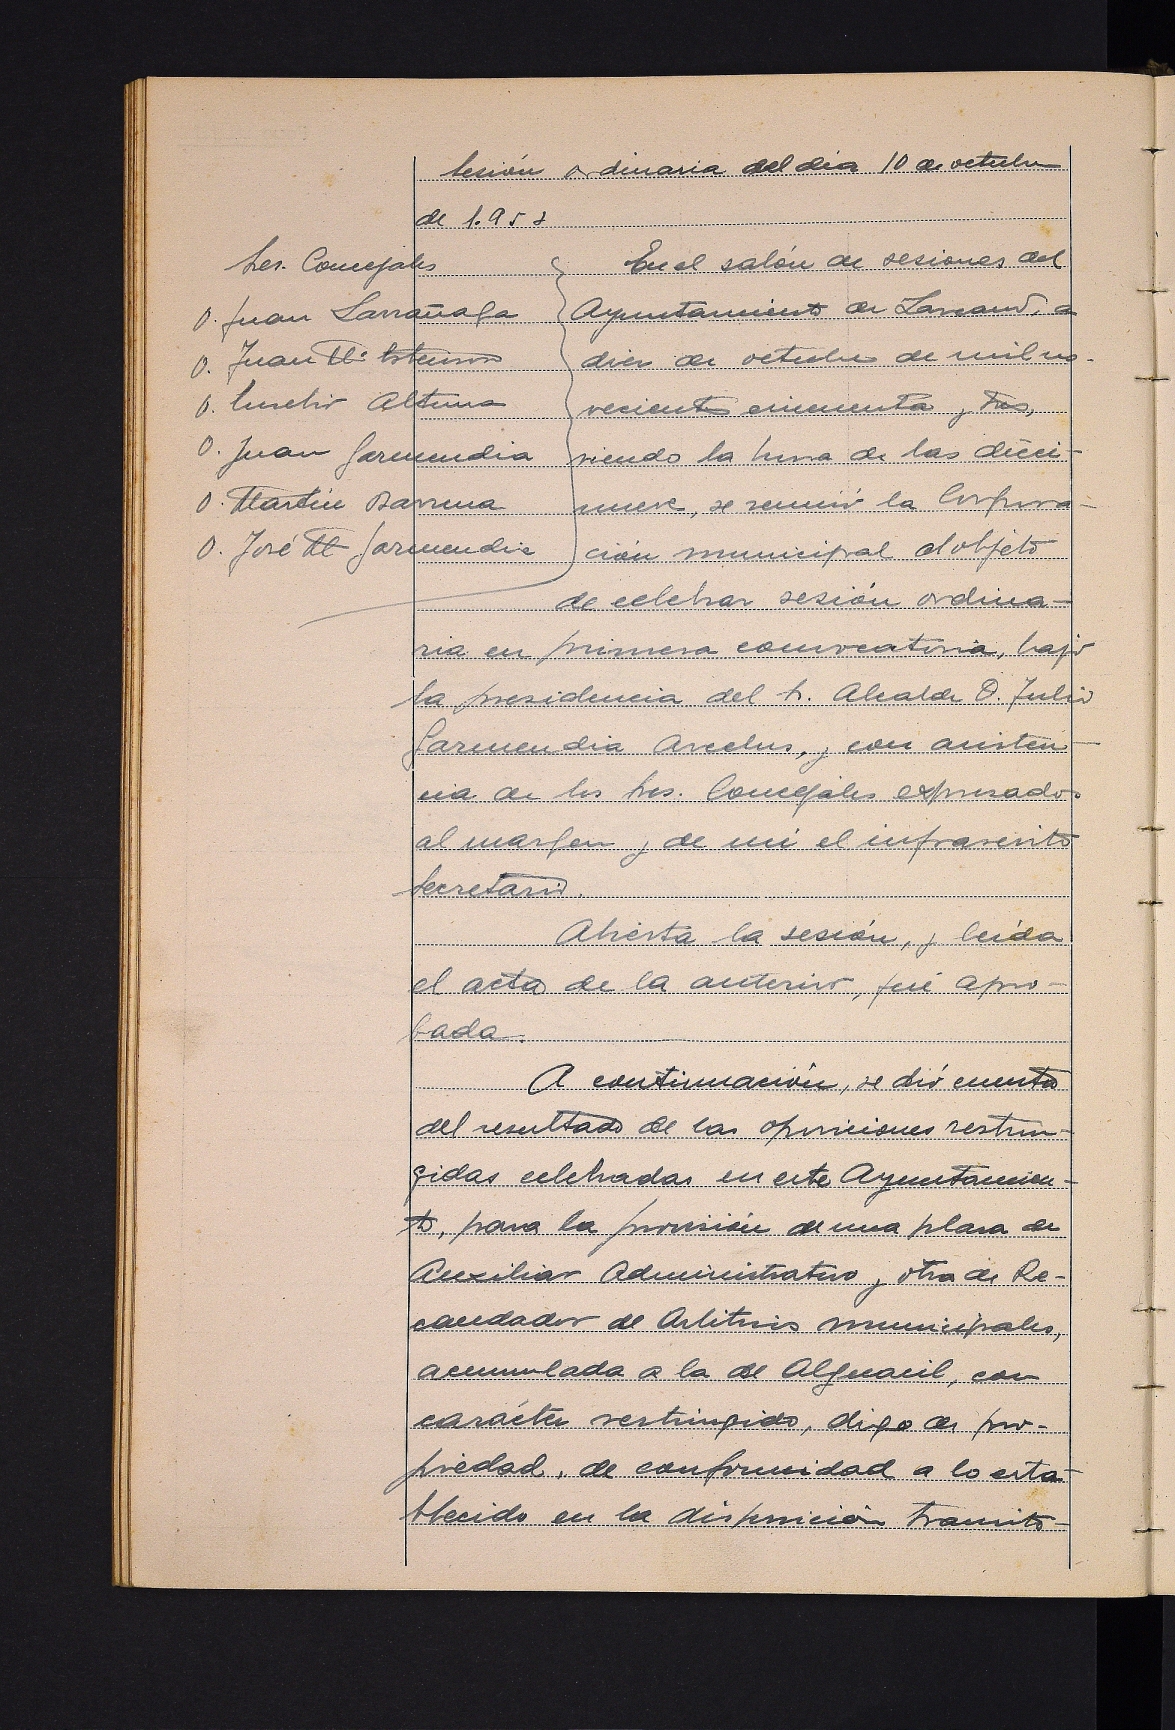 Sesión ordinaria del dia 10 de octubre
de 1.953
Sres. Concejales
D. Juan Larrañaga
D. Juan Mª
D. Eusebio Altuna
D. Juan Garmendia
D. Martin Barrena
D. José M Garmendia
En el salón de sesiones del
Ayuntamiento de Lazcano, a
diez de octubre de mil no-
vecientos cincuenta y tres,
siendo la hora de las dieci-
nueve, se reunió la Corpora-
ción municipal al objeto
de celebrar sesión ordina-
ria en primera convocatoria, bajo
la presidencia del Sr. Alcalde D. Julio
Garmendia Arcelus, y con asisten-
cia de los Sres. Concejales expresados
al margen y de mi el infrascrito
Secretario.
Abierta la sesión, y leída
el acta de la anterior, fué apro-
bada.
A continuación, se dió cuenta
del resultado de las oposiciones restrin-
gidas celebradas en este Ayuntamien-
to, para la provisión de una plaza de
Auxiliar Administrativo y otra de Re-
caudador de Arbitrios municipales,
acumulada a la de Alguacil, con
carácter restringido, digo de pro-
piedad, de conformidad a lo esta-
blecido en la disposición transito-